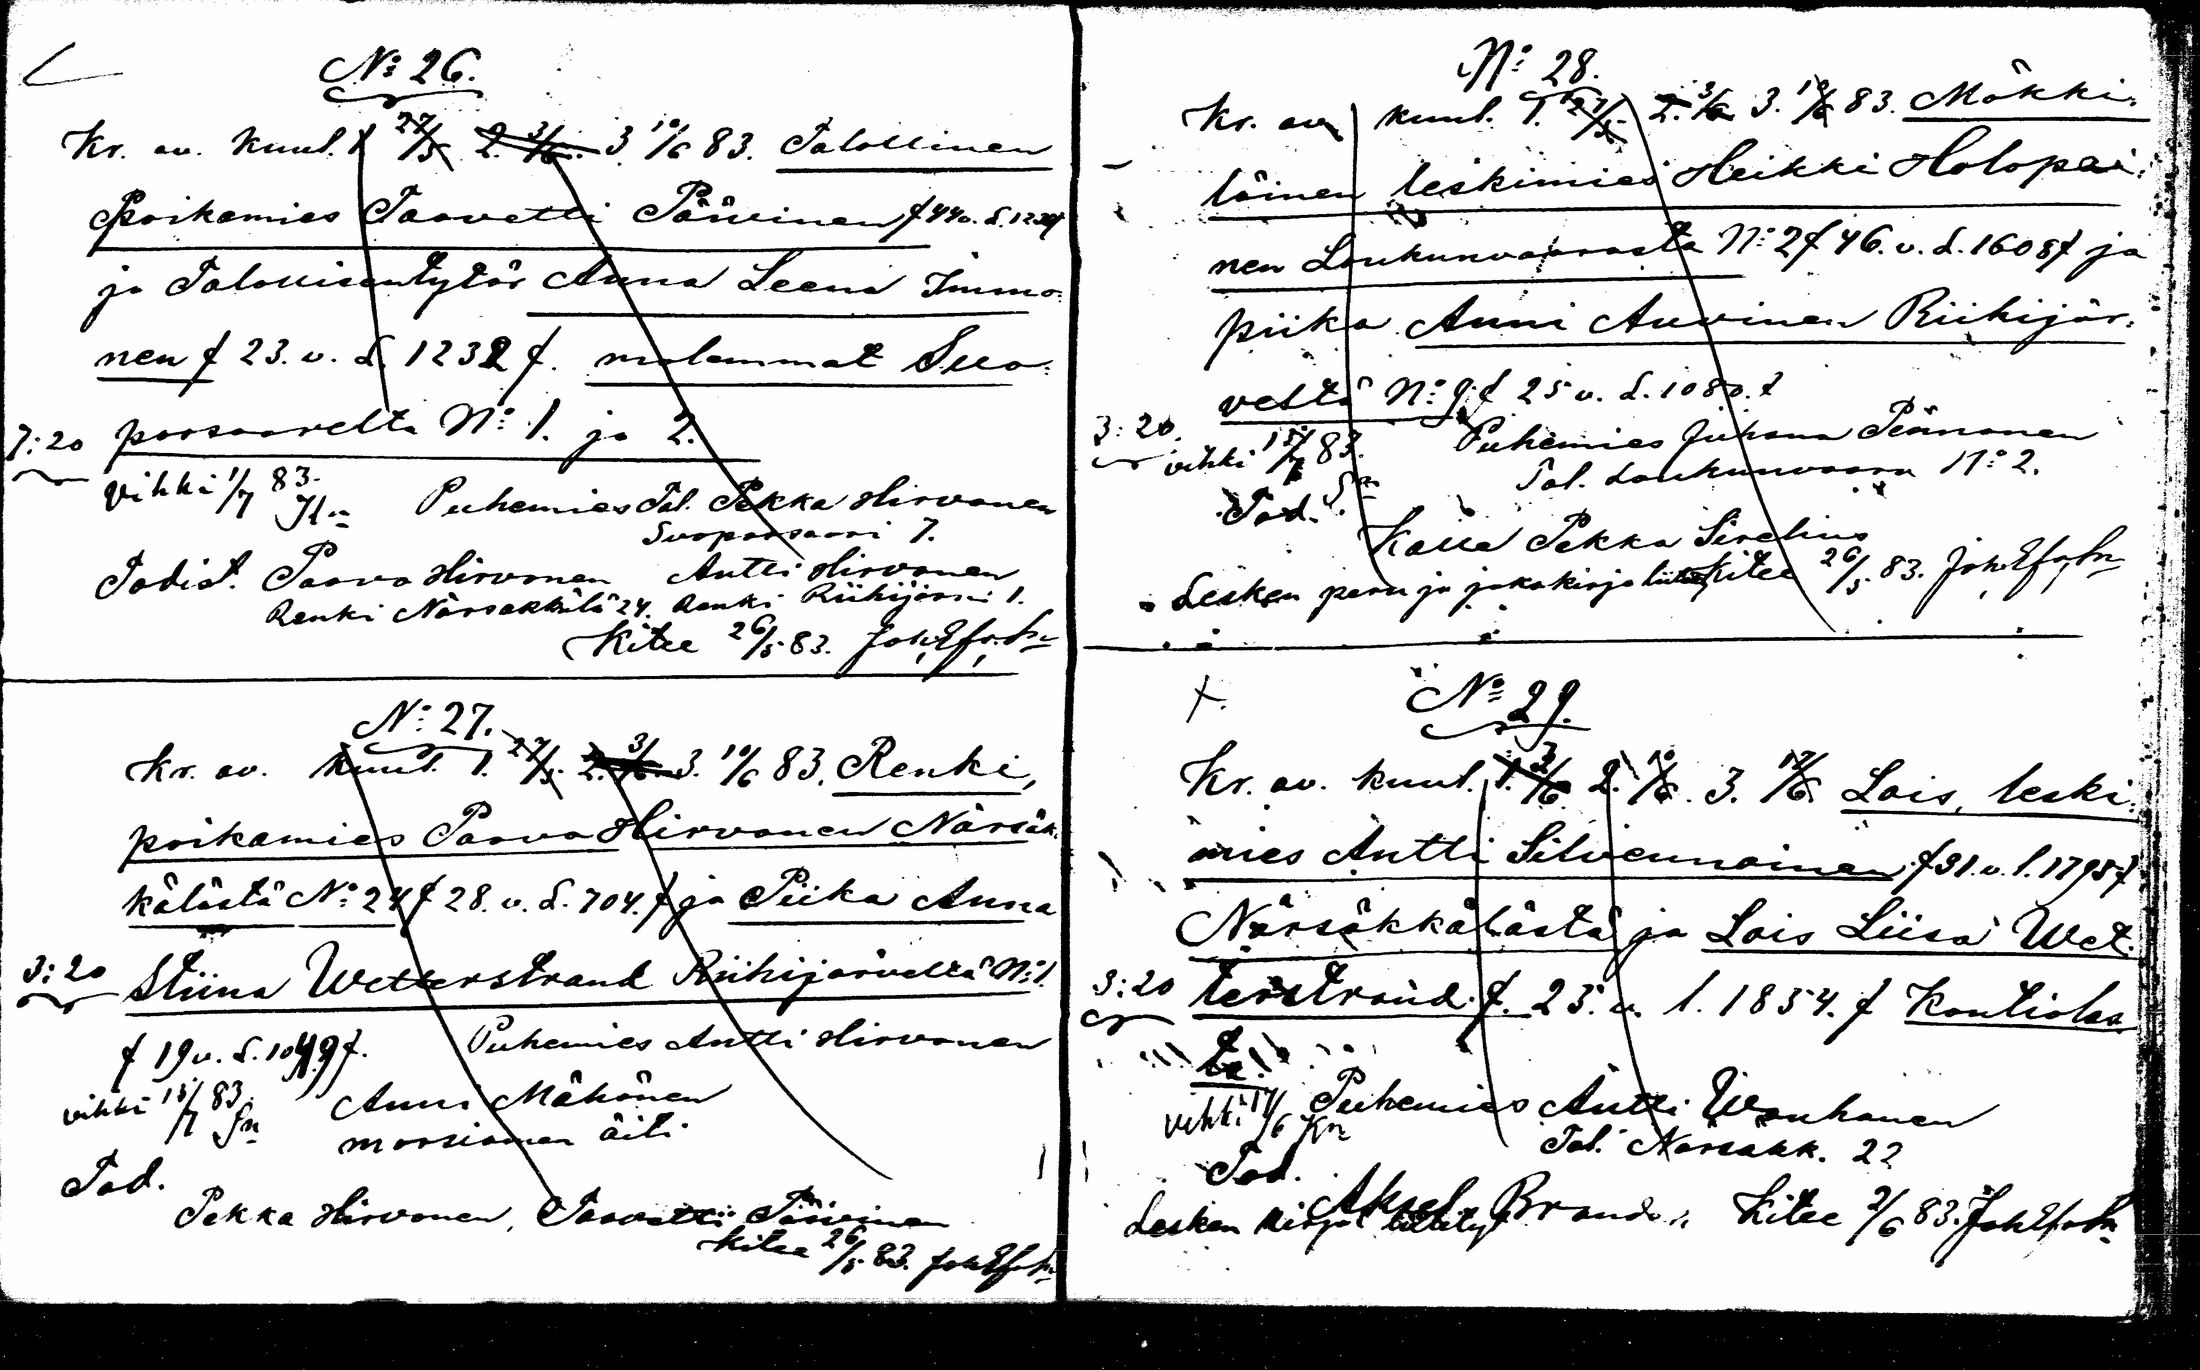 No 26.
Kr. av. kuul. 1 27/5 2. 3/6 3. 10/6 83. Talollinen
Poikamies Taavetti Päivinen
ja Talollisentytär Anna Leena Immo-
nen f 23. v. S. 1232 f. molemmat Suo-
porsaarelta No 1. ja 2.
7:20
vihki 1/7 83.
Puhemies Tal. Pekka Hirvonen
Suoporsaari 7.
Todist. Paavo Hirvonen Antti Hirvonen
Renki Närsäkkälä 24. Renki Riihijärvi 1.
Kitee 26/5 83.
No 27.
Kr. av. kuul. 1. 27/5 2. 3/6 3. 10/6 83. Renki,
poikamies Paavo Hirvonen Närsäk-
kälästä No 24 f 28. v. S. 704. f ja Piika Anna
3:20
Stiina Wetterstrand Riihijärveltä No 1.
f 19 v. S.
Puhemies Antti Hirvonen
vihki 15/7 83.
Anni Mähönen
morsiamen äiti
Tod.
Pekka Hirvonen, Taavetti Päivinen
Kitee 26/5 83.
No 28.
Kr. av. kuul. 1. 27/5 2. 3/6 3. 10/6 83. Mökki-
läinen leskimies Heikki Holopai-
nen Loukunvaarasta No 2 f 46. v. S. 1608 f ja
piika Anni Auvinen Riihijär-
vestä No 9 f 25 v. S. 1080. f
3:20.
vihki 15/7 83.
Puhemies Juhana Pennanen
Tal. Loukunvaara No 2.
Tod.
Kalle Pekka Sirelius
Lesken peru ja jakokirja Kitee 26/5 83.
No 29.
Kr. av. kuul. 1. 3/6 2. 10/6 3. 17/6 Lois, leski-
mies Antti Silvennoinen
Närsäkkälästä ja Lois Liisa Wet-
3:20
terstrand f. 25. v. l. 1854. f Kontiolas
ta.
vihki 17/6
Puhemies Antti Wanhanen
Tal. Närsäkk. 22
Tod.
Aksel Brand
Lesken kirjat liitetty Kitee 2/6 83.